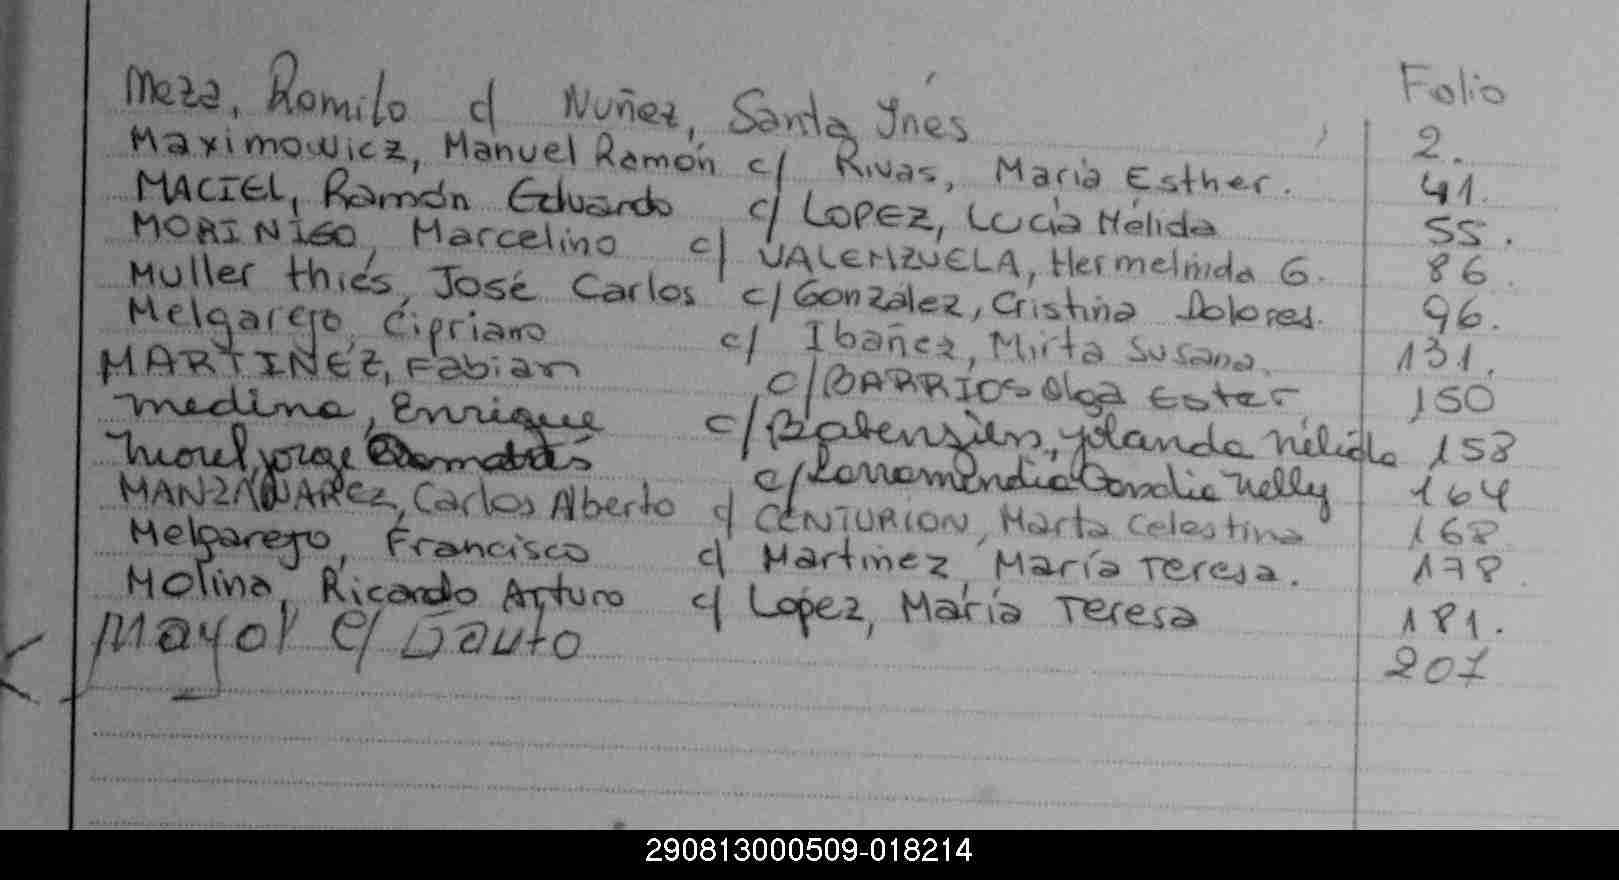 Folio
Meza, Romilo c/ Nuñez, Santa Ynés 2.
Maximowicz, Manuel Ramón c/ Rivas, María Esther. 41.
MACIEL, Ramón Eduardo c/ LOPEZ, Lucía Hélida 55.
MORINIGO, Marcelino c/ VALENZUELA, Hermelinda G. 86
Muller thiés, José Carlos c/ González, Cristina Dolores. 96.
Melgarejo, Cipriano c/ Ibañez, Mirta Susana. 131.
MARTINEZ, Fabian c/ BARRIOS Olga Ester 150
medina, Enrique c/ Yolanda Nélida 153
Morel, Jorge c/ Larramendia Nelly 164
Carlos Alberto c/ CENTURION, Marta Celestina 168
Melgarejo, Francisco c/ Martínez, María Teresa. 178.
Molina, Ricardo Arturo c/ López, María Teresa 181.
Mayol c/ Gauto 207
290813000509-018214